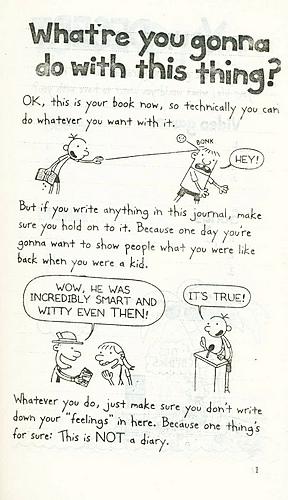 What're you gonna
do with this thing?
OK, this is your book now, so technically you can
do whatever you want with it.
BONK
HEY!
But if you write anything in this journal, make
sure you hold on to it. Because one day you're
gonna want to show people what you were like
back when you were a kid.
WOW, HE WAS
INCREDIBLY SMART AND
WITTY EVEN THEN!
IT'S TRUE!
Whatever you do, just make sure you don't write
down your "feelings" in here. Because one thing's
for sure: This is NOT a diary.
1